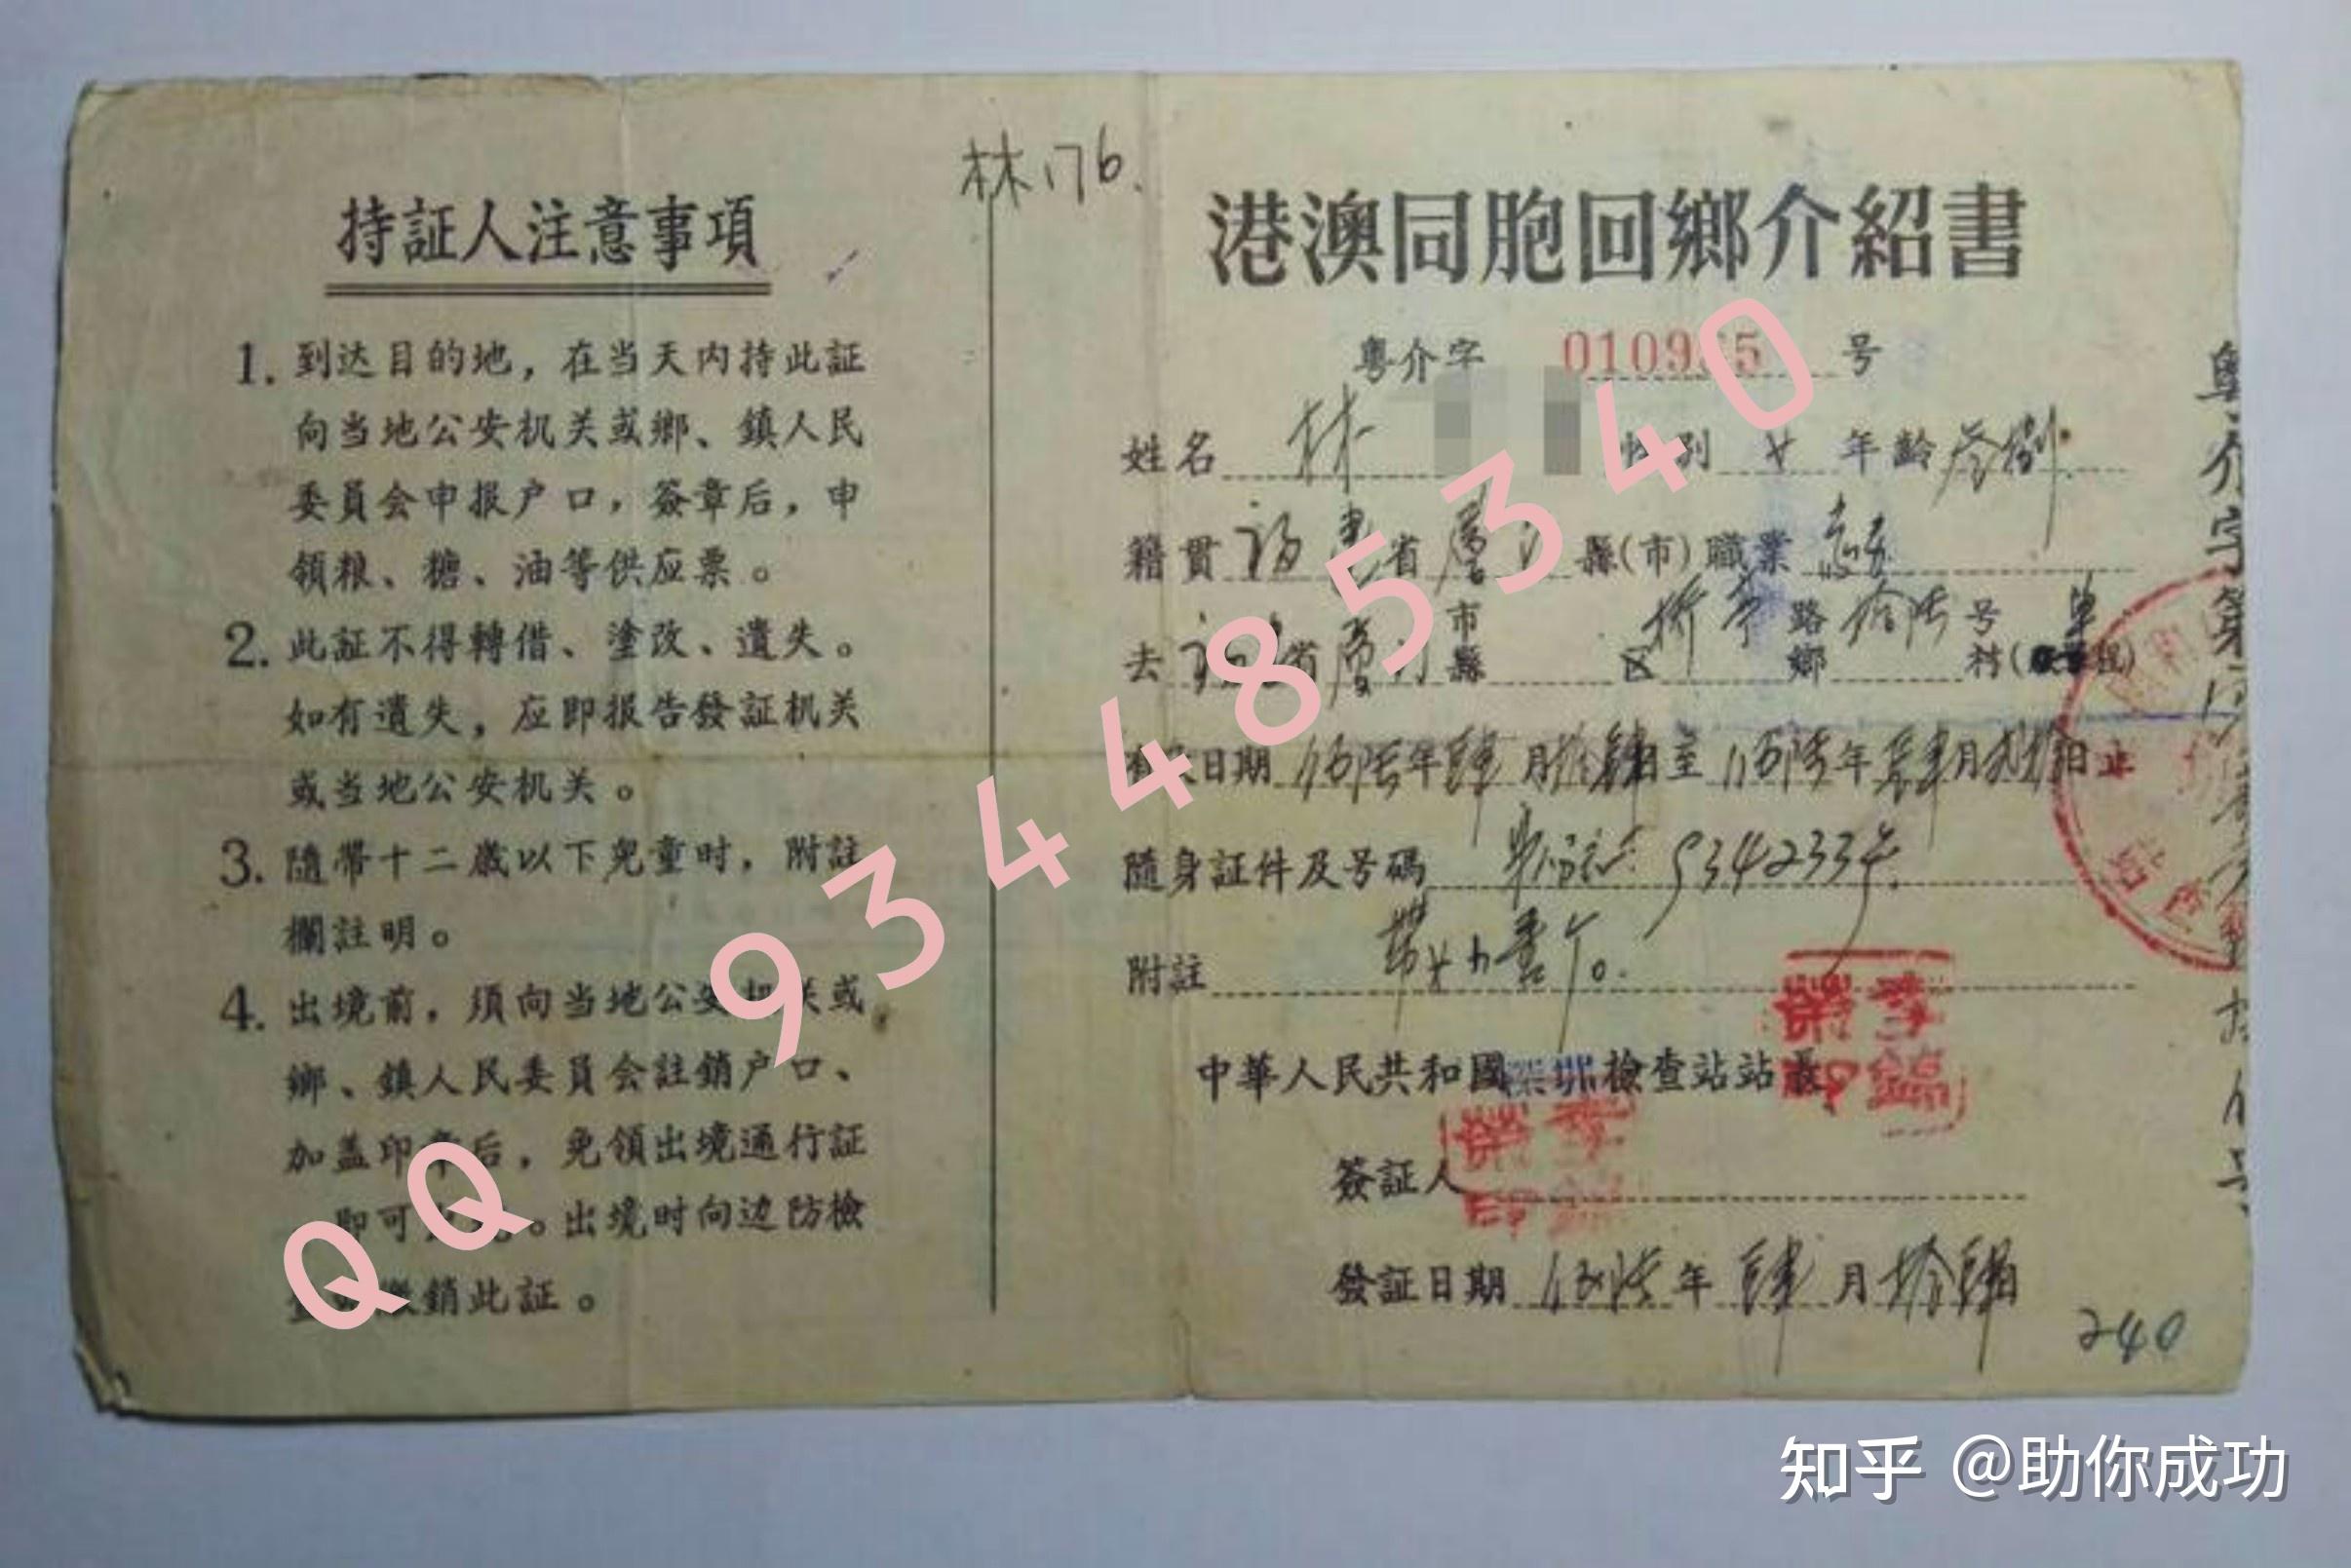 林176.
持証人注意事項
1. 到达目的地，在当天内持此証
向当地公安机关或鄉、鎮人民
委員会申报户口，簽章后，申
領粮、糖、油等供应票。
2. 此証不得轉借、塗改、遺失。
如有遺失，应即报告發証机关
或当地公安机关。
3. 隨帶十二歲以下兒童时，附註
欄註明。
4. 出境前，須向当地公安机关或
鄉、鎮人民委員会註銷户口、
加盖印章后，免領出境通行証
即可。出境时向边防檢
繳銷此証。
港澳同胞回鄉介紹書
粵介字 010935 号
姓名 林 性别 女 年齡
籍貫 福建省 厦门 縣(市)職業
去 福建省厦门 市縣 区 路鄉 拾陆 号村
有效日期 年肆月拾肆日至 年 月 日止
隨身証件及号碼 身份証 5342334号
附註 帶女小壹个。
中華人民共和國 檢查站站長
簽証人
發証日期 年肆月拾肆日
240
粵介字第
QQ 934485340
知乎 @助你成功